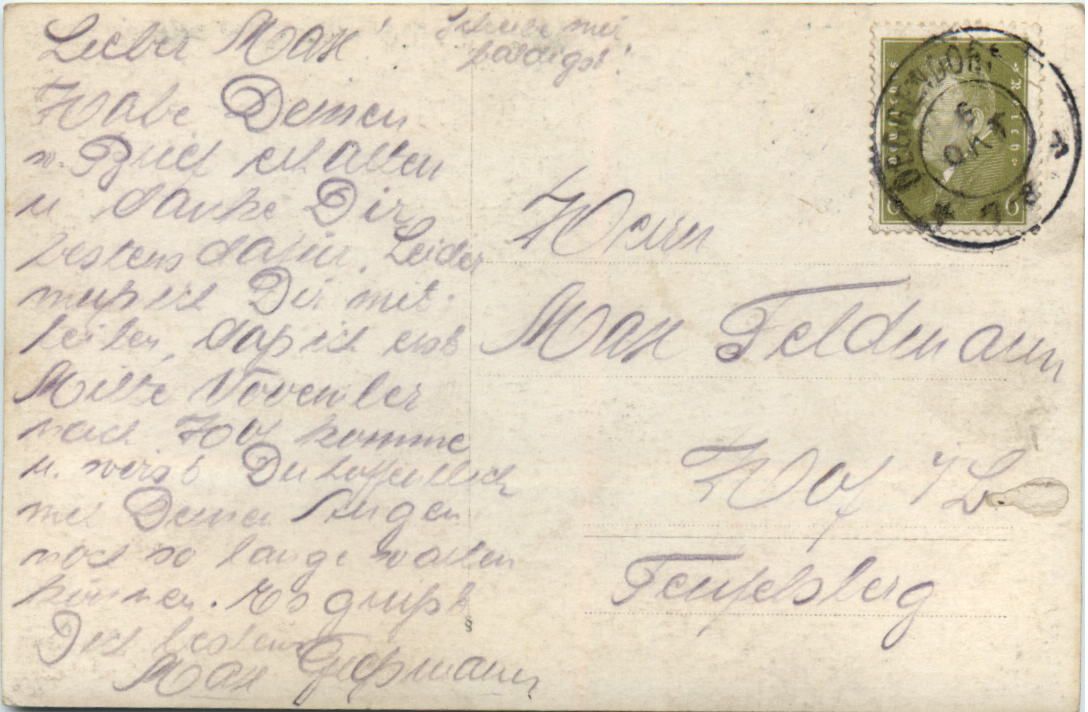 Lieber Max!
Schreibe mir
baldigst!
Habe Deinen
w. Brief erhalten
u. danke Dir
bestens dafür. Leider
muß ich Dir mit-
teilen, daß ich erst
Mitte November
nach Hof komme
u. wirst Du hoffentlich
mit Deinen Augen
noch so lange warten
können. Es grüßt
Dich bestens
Max
Herrn
Max Feldmann
Hof i/B
Teufelsberg
Deutsches Reich
6 6
DEGGENDORF
6
OKT
7-8